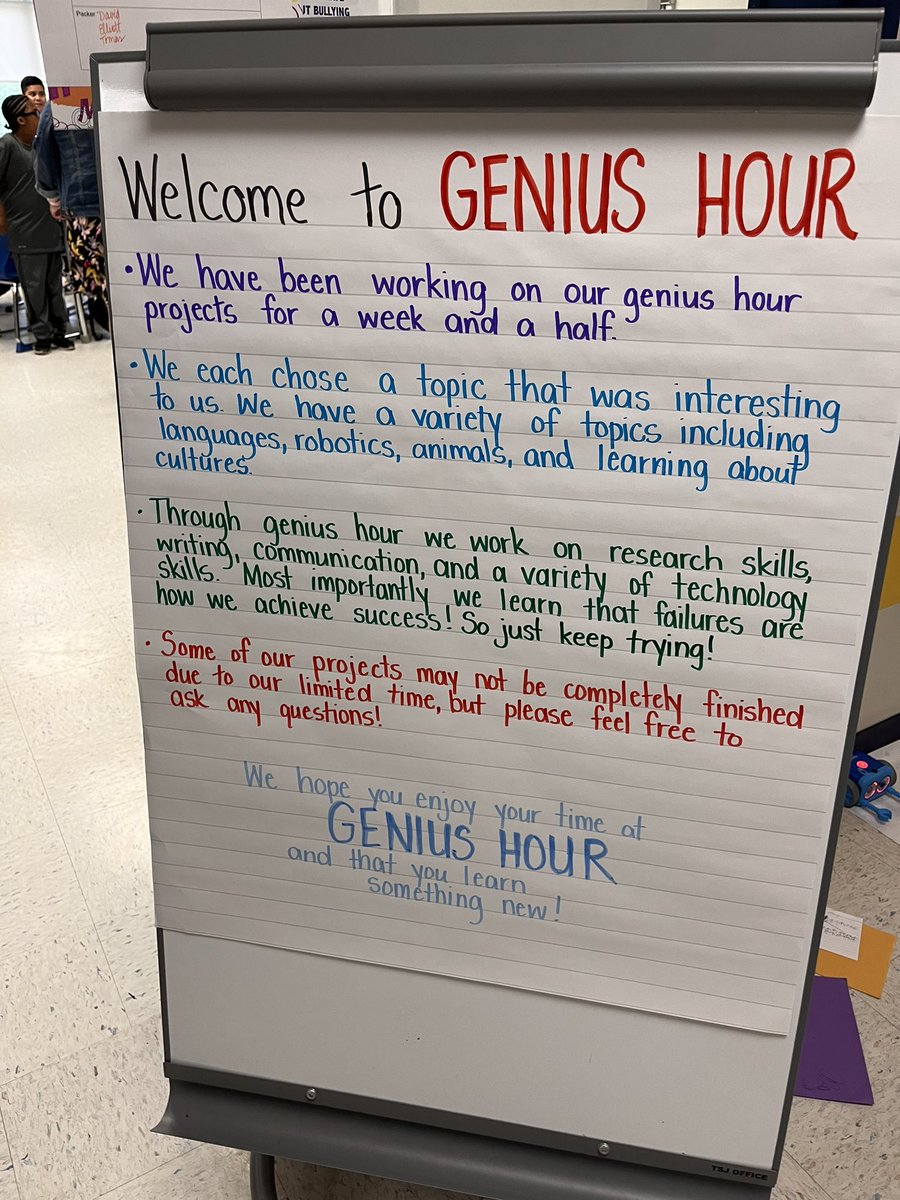 UT BULLYING
Packer
David
Elliott
Welcome to GENIUS HOUR
• We have been working on our genius hour
projects for a week and a half.
• We each chose a topic that was interesting
to us. We have a variety of topics including
languages, robotics, animals, and learning about
cultures.
• Through genius hour we work on research skills,
writing, communication, and a variety of technology
skills. Most importantly we learn that failures are
how we achieve success! So just keep trying!
• Some of our projects may not be completely finished
due to our limited time, but please feel free to
ask any questions!
We hope you enjoy your time at
GENIUS HOUR
and that you learn
something new!
TSJ OFFICE